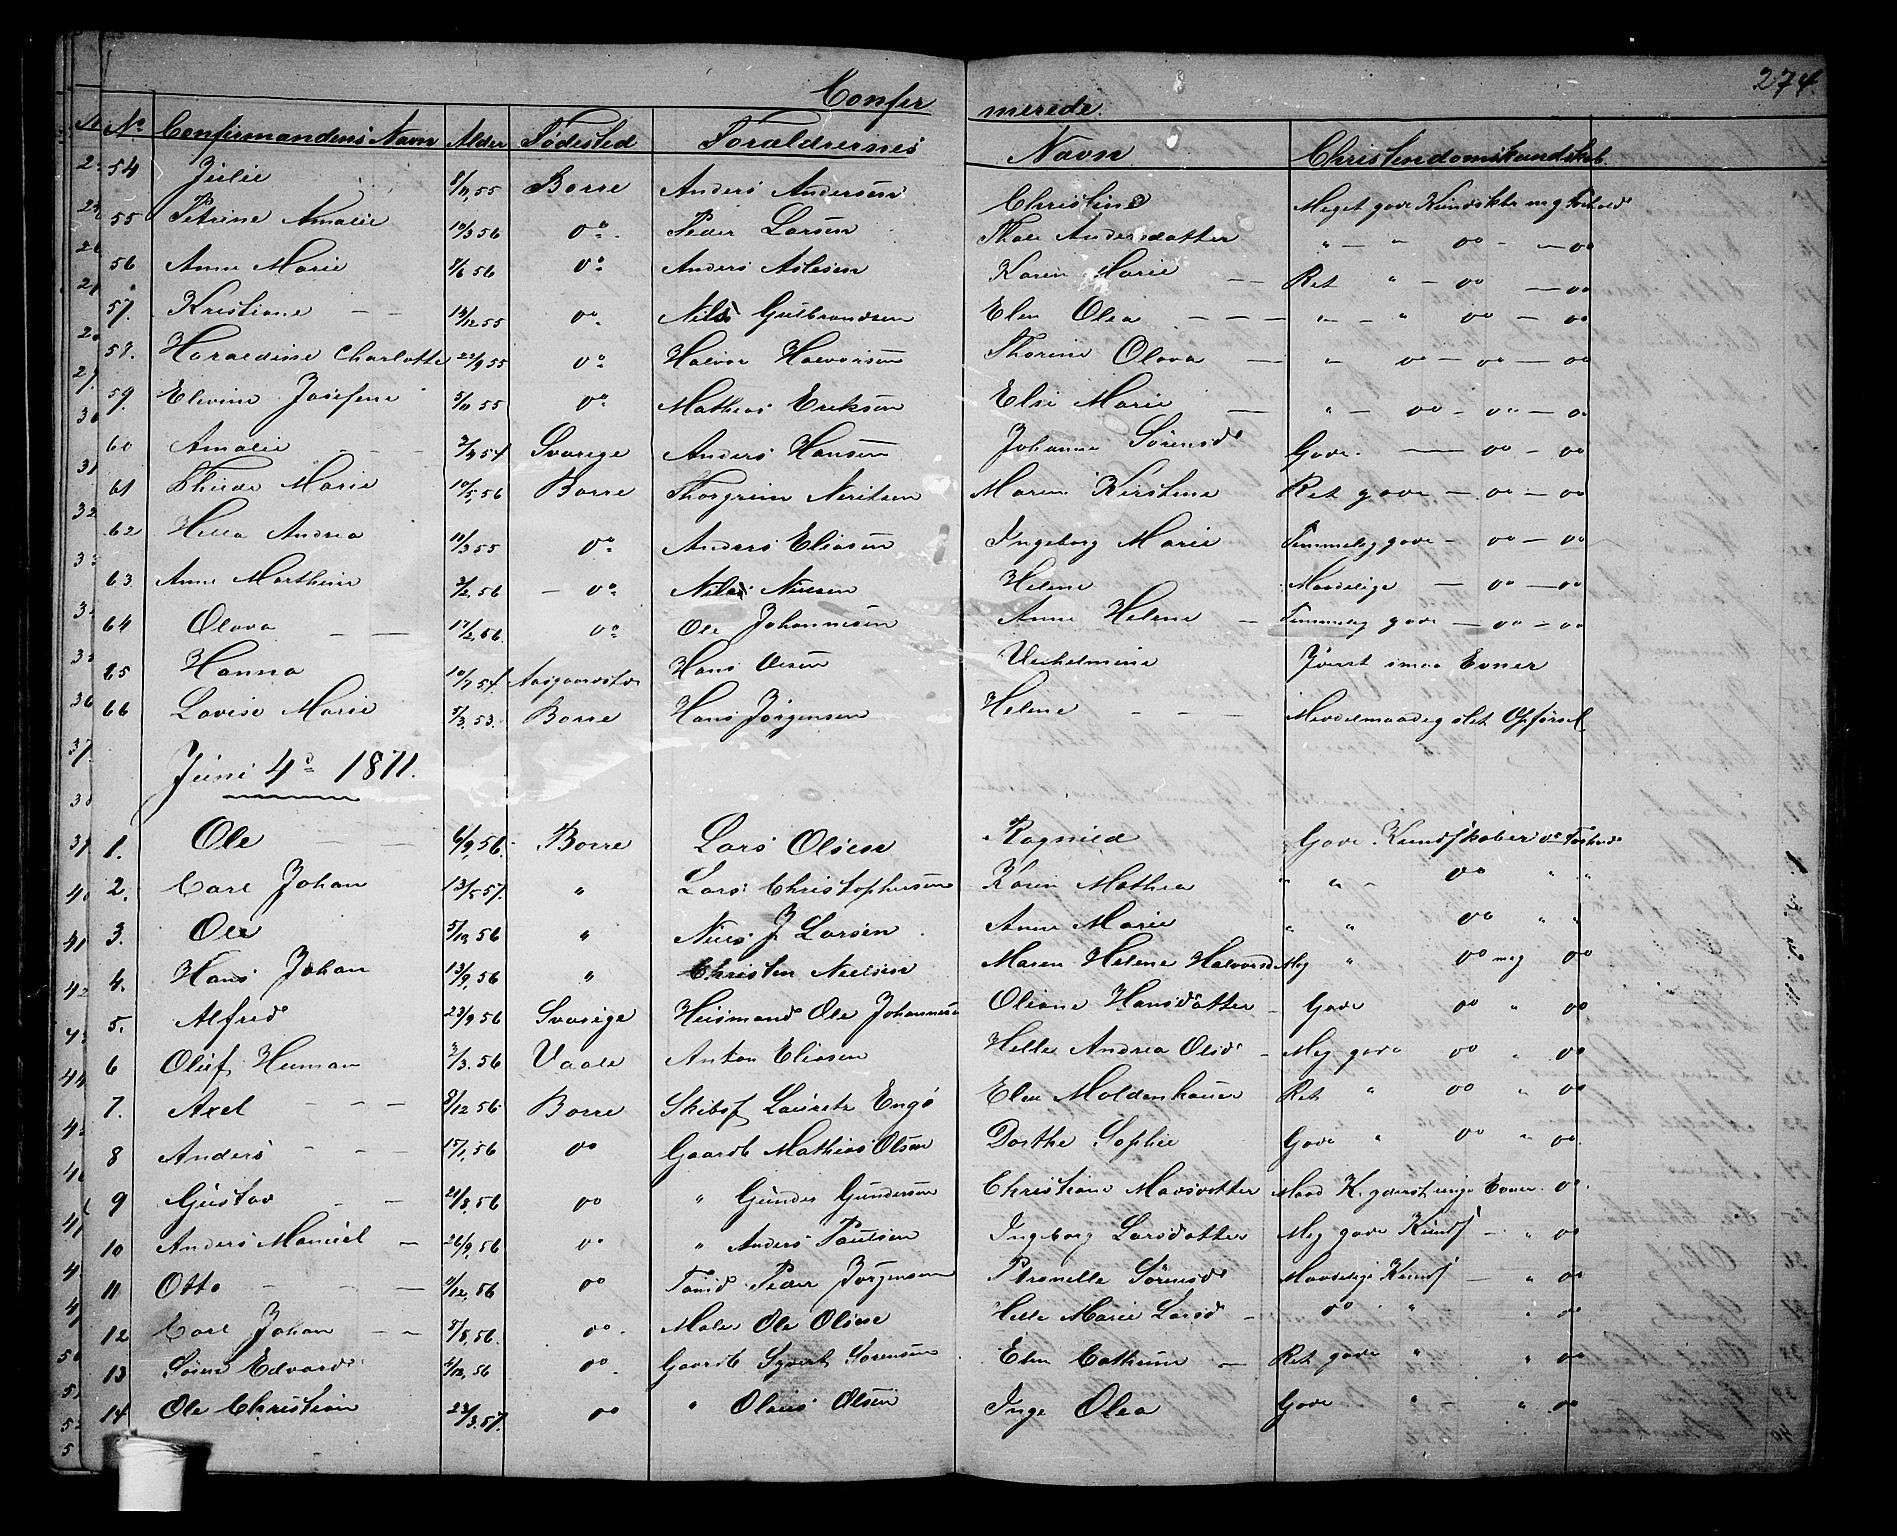 274.
Confir merede.
No. Confirmandens Navn Alder Fødested Forældrernes Navn Christendomskundskab
54 Julie 8/11, 55 Borre Anders Andersen Christine Meget gode Kundskb: meg Forhold
55 Petrine Amalie 10/3 56 do Peder Larsen Thale Andersdatter " — " do - — do
56 Anne Marie 56 do Anders Aslesen Karen Marie — — Ret " - do — do
57. Kristiane — — 13/12 55 do Nils Gulbrandsen Elen Olea — — — " — " do — do
58. Haraldine Charlotte 22/9 55 do Halvor Halvorsen Thorine Olava — " do — do — do
59. Elevine Josefine 5/11 55 do Mathias Eriksen Else Marie — " — do — do — do
60 Amalie 54 Sverige Anders Hansen Johanne Sørensd Gode. — do — do
61 Marie 10/5, 56 Borre Thorgrim Maren Kirstine Ret gode — do — do
62 Helle Andrea 10/3 55 do Anders Eliasen Ingeborg Marie Temmelig gode — do — do
63. Anne Marthine 3/2, 56 — do Nils Nielsen Helene Maadelige — do — do
64 Olava — — 17/2, 56. do Ole Johannesen Anne Helene — Temmelig gode — do — do
65 Hanna 10/7 54 Aasgaardstr Hans Olsen Vilhelmine Yderst smaa Evner
66 Lovise Marie 5/3, 53. Borre Hans Jørgensen Helene — — — Middelmaadig slet Opførsel
Juni 4d 1871.
1. Ole — — 6/9, 56. Borre Lars Olsen Ragnild Gode Kundskaber do Forhold
2. Carl Johan 13/5 57. " Lars Christophersen Karen Mathea " " - do " "
3. Ole 5/12 56 " Niels J Larsen Anne Marie " " do " "
4. Hans Johan 13/9, 56 " Christen Nielsen Maren Helene Halvorsd Meg " do meg do
5. Alfred 23/9, 56 Sverige Huusmand Ole Johannesen Oliane Hansdatter — Gode do " do
6 Oluf Herman 3/3. 56 Vaale Anton Eliasen Helle Andrea Olsd — Meg gode do " do
7. Axel — — — 8/12 56 Borre Skibsf Lauritz Engø Elen Moldenhauer Ret " do " do
8 Anders — — — 15/1, 56 do Gaardb Mathias Olsen Dorthe Sophie Gode " do " do
9 Gustav — — 21/8, 56 do " Gunder Gundersen Christiane Madsdatter Maad K. yderst ringe Evner. do
10 Anders Manuel — 26/9, 56 do " Anders Paulsen Ingeborg Larsdatter Meg gode Kundsk — " do
11 Otto — — — 9/12, 56 do Tømd Peder Jørgensen Petronelle Sørensd Maadelige Kundsk — " do
12 Carl Johan — — 5/8, 56. do. Maler Ole Olsen Helle Marie Larsd — do - " " do
13 Søren Edvard 5/12, 56 do Gaardb Syvert Sørensen Elen Cathrine — Ret gode " " do
14 Ole Christian 22/3. 57. do " Olaus Olsen Inge Olea Gode " " do